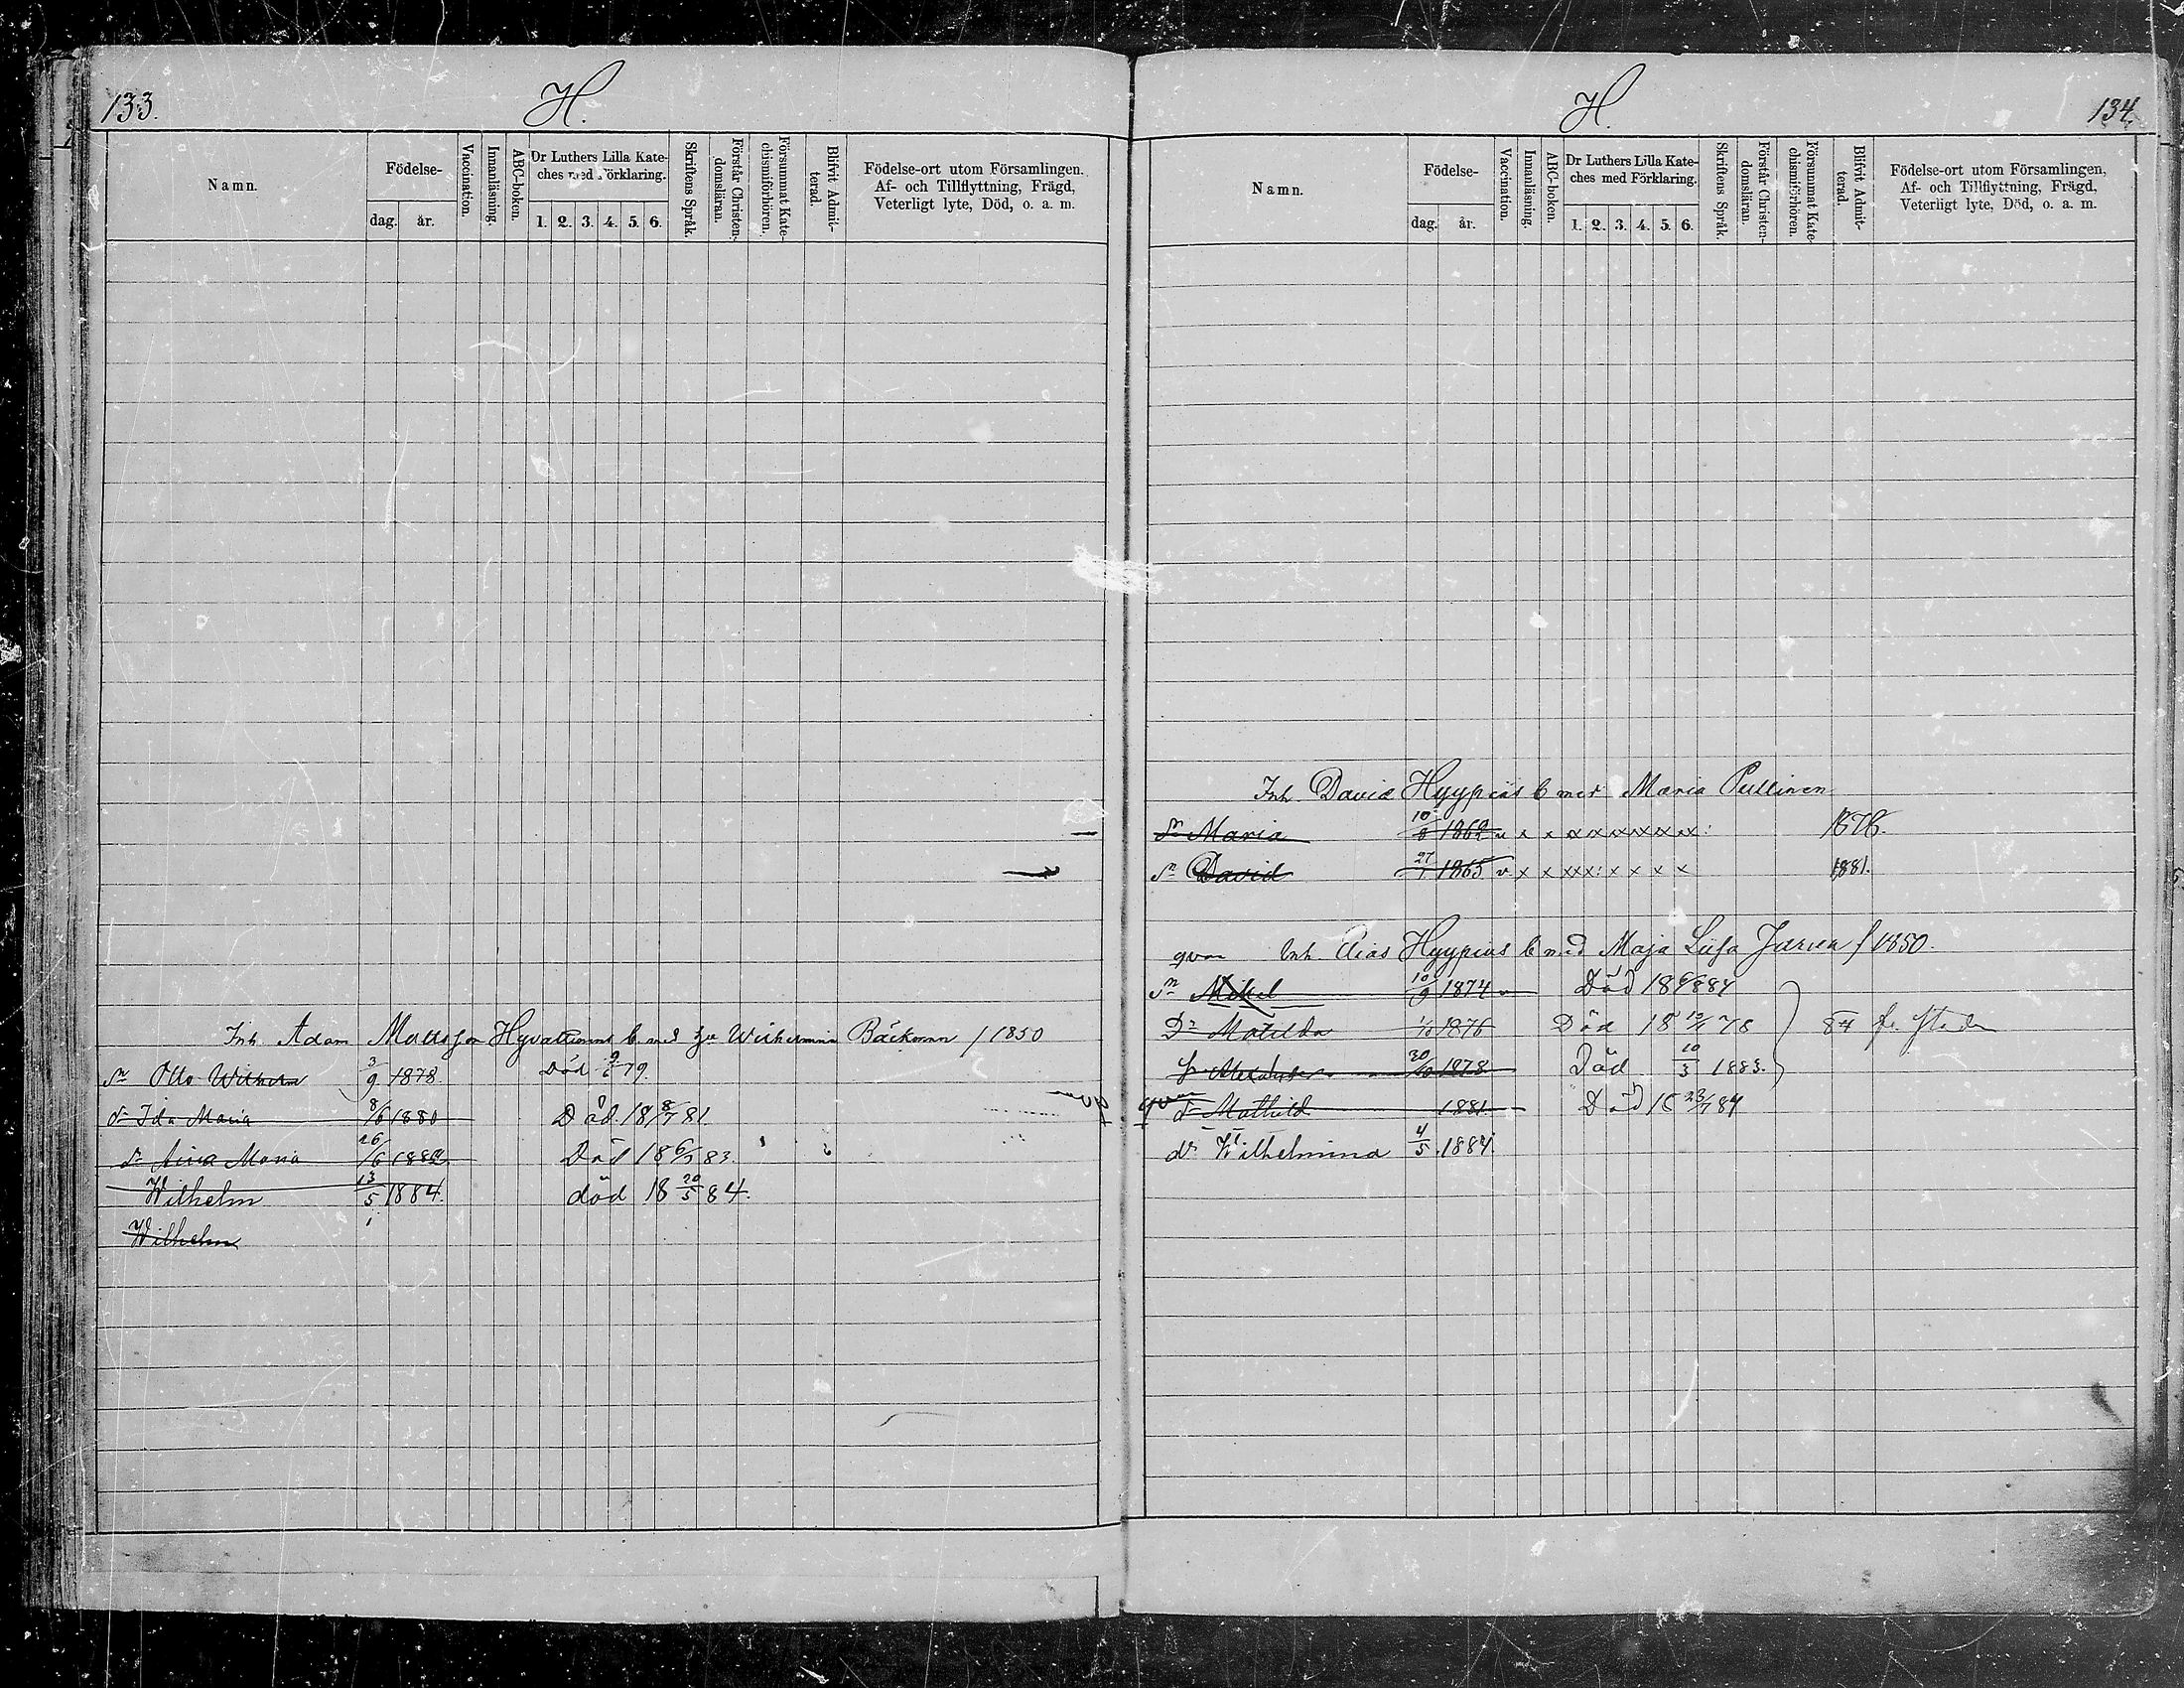 133.
H.
Namn.
Födelse-
dag.
år.
Vaccination.
Innanläsning.
ABC-boken.
Dr Luthers Lilla Kate-
ches med Förklaring.
1. 2. 3. 4. 5. 6.
Skriftens Språk.
Förstår Christen-
domsläran.
Försummat Kate-
chismiförhören.
Blifvit Admit-
terad.
Födelse-ort utom Församlingen,
Af- och Tillflyttning, Frägd,
Veterligt lyte, Död, o. a. m.
Inh. Adam Mattsson Wilhelmina Bäckman / 1850
Sn Otto Wilhelm 3/9 1878. Död 79.
dr Ida Maria 8/6 1880 Död. 18 8/7 81.
dr Maria 26/6 1882 Död 18 6/7 83.
Wilhelm 13/5 1884. död 18 20/5 84.
Wilhelm
H.
134.
Namn.
Födelse-
dag.
år.
Vaccination.
Innanläsning.
ABC-boken.
Dr Luthers Lilla Kate-
ches med Förklaring.
1. 2. 3. 4. 5. 6.
Skriftens Språk.
Förstår Christen-
domsläran.
Försummat Kate-
chismiförhören.
Blifvit Admit-
terad.
Födelse-ort utom Församlingen,
Af- och Tillflyttning, Frägd,
Veterligt lyte, Död, o. a. m.
Inh. David Hyypiäs b med Maria Pullinen
Maria 1862 v x x x x x x x x x 1878.
Sn David 27/1 1865 v x x x x x x x x x 1881.
qvar Inh. Elias Hyypiäs b med Maja Lisa f 1850.
Sn Mikel 10/9 1874 Död 1884
Dr Matilda 1876 Död 78
Alexander 1878 Död 10/3 1883.
qvar
dr Mathild 1881 Död 18 23/7 84
dr Wilhelmina 4/5 1884.